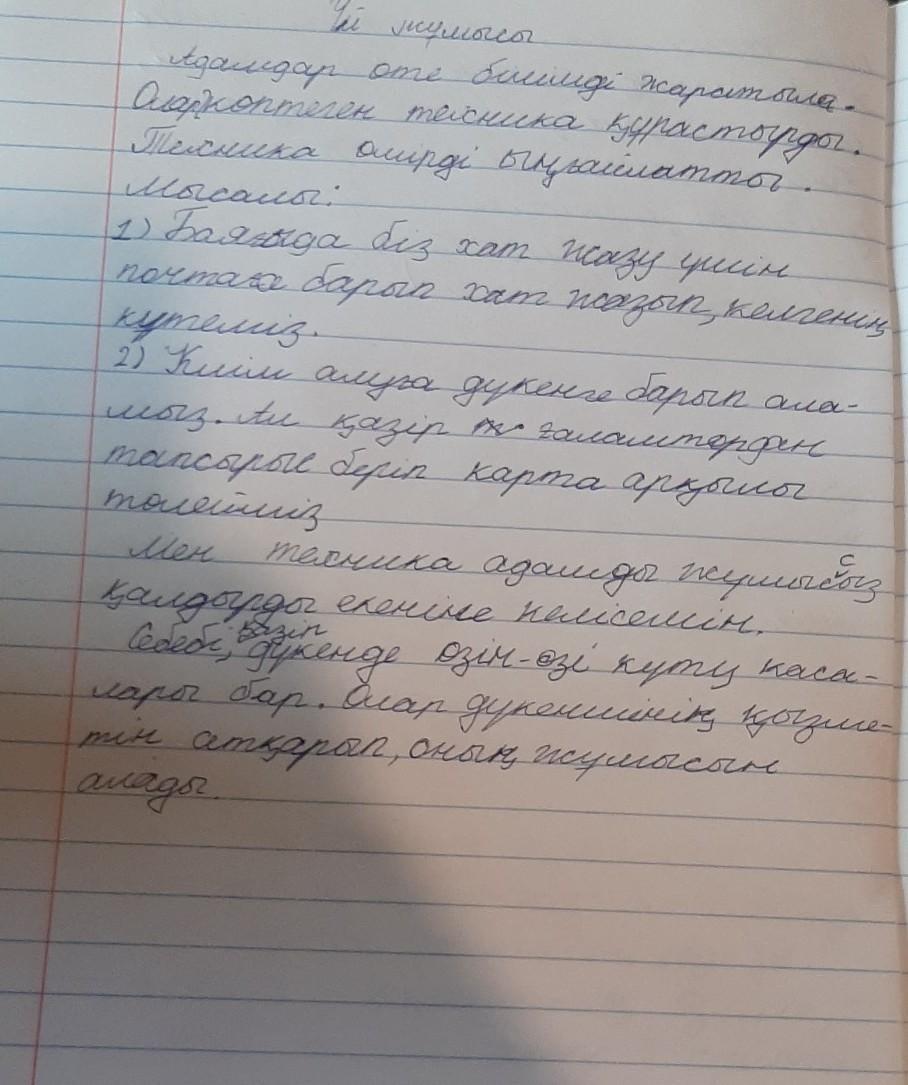 Үй жұмысы
Адамдар өте білімді жаратыла.
Олар көптеген техника құрастырды.
Техника өмірді ыңғайлатты.
Мысалы:
1) Баяғыда біз хат жазу үшін
почтаға барып хат жазып, келгенің
күтеміз.
2) Киім алуға дүкенге барып ала-
мыз. Ал қазір ғаламтордан
тапсырыс беріп карта арқылы
төлейміз
Мен техника адамды жұмыссыз
қалдырды екеніне келісемін.
Себебі, қазір дүкенде өзін-өзі күту каса-
лары бар. Олар дүкеншінің қызме-
тін атқарып, оның жұмысын
алады.